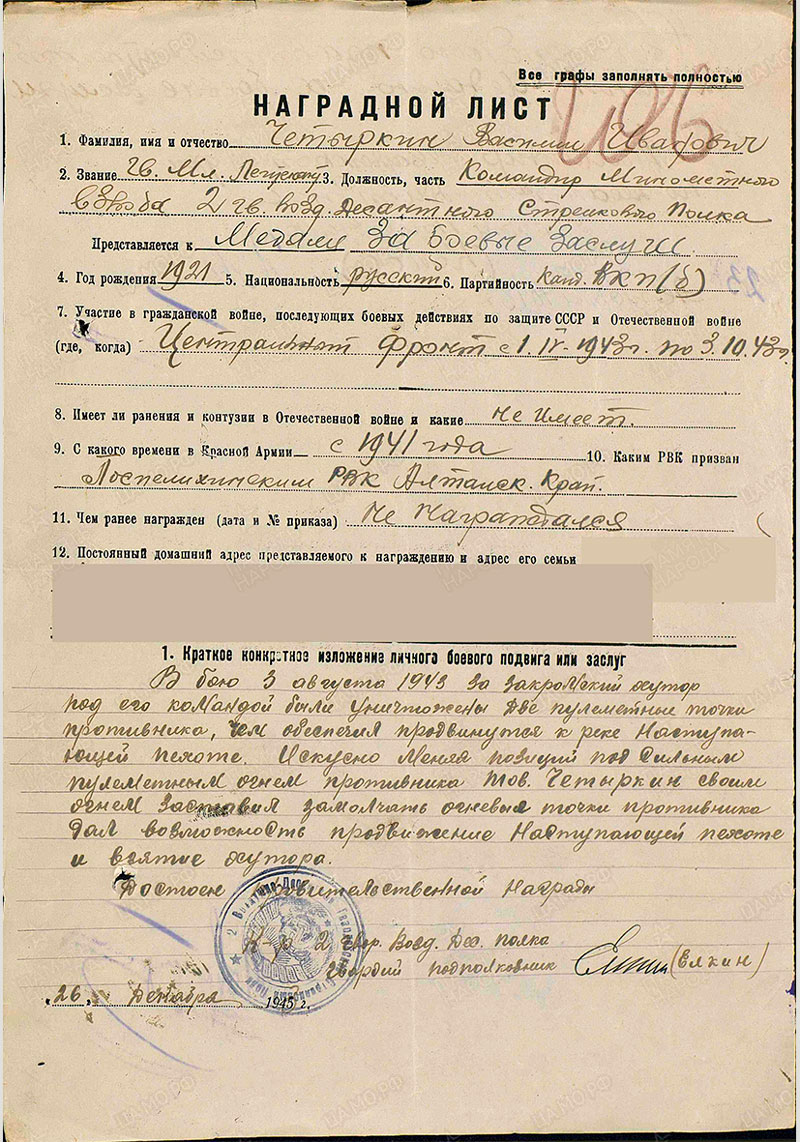 Все графы заполнять полностью
НАГРАДНОЙ ЛИСТ
1. Фамилия, имя и отчество Четыркин Василий Иванович
2. Звание Гв. Мл. Лейтенант 3. Должность, часть Командир Минометного
взвода 2 гв. возд. Десантного Стрелкового Полка
Представляется к Медали За боевые Заслуги.
4. Год рождения 1921 5. Национальность русский 6. Партийность Канд. ВКП(б) 23
7. Участие в гражданской войне, последующих боевых действиях по защите СССР и Отечественной войне
(где, когда) Центральный Фронт с 1.IV-1943г. по 3.10.43г.
8. Имеет ли ранения и контузии в Отечественной войне и какие не имеет.
9. С какого времени в Красной Армии с 1941 года 10. Каким РВК призван
Поспелихинским РВК Алтайск. Край.
11. Чем ранее награжден (дата и № приказа) Не Награждался
12. Постоянный домашний адрес представляемого к награждению и адрес его семьи
1. Краткое конкретное изложение личного боевого подвига или заслуг
В бою 3 августа 1943 за Закромский хутор
под его командой были уничтожены две пулеметные точки
противника, чем обеспечил продвинутся к реке Наступа-
ющей пехоте. Искусно Меняя позиций под Сильным
пулеметным огнем противника Тов. Четыркин своим
огнем Заставил замолчать огневые точки противника
дал возможность продвижение Наступающей пехоте
и взятие хутора.
Достоен правительственной Награды
К-р 2 Гвар. Возд. Дес. полка
гвардий подполковник (Елкин)
26 Декабря 1943 г.